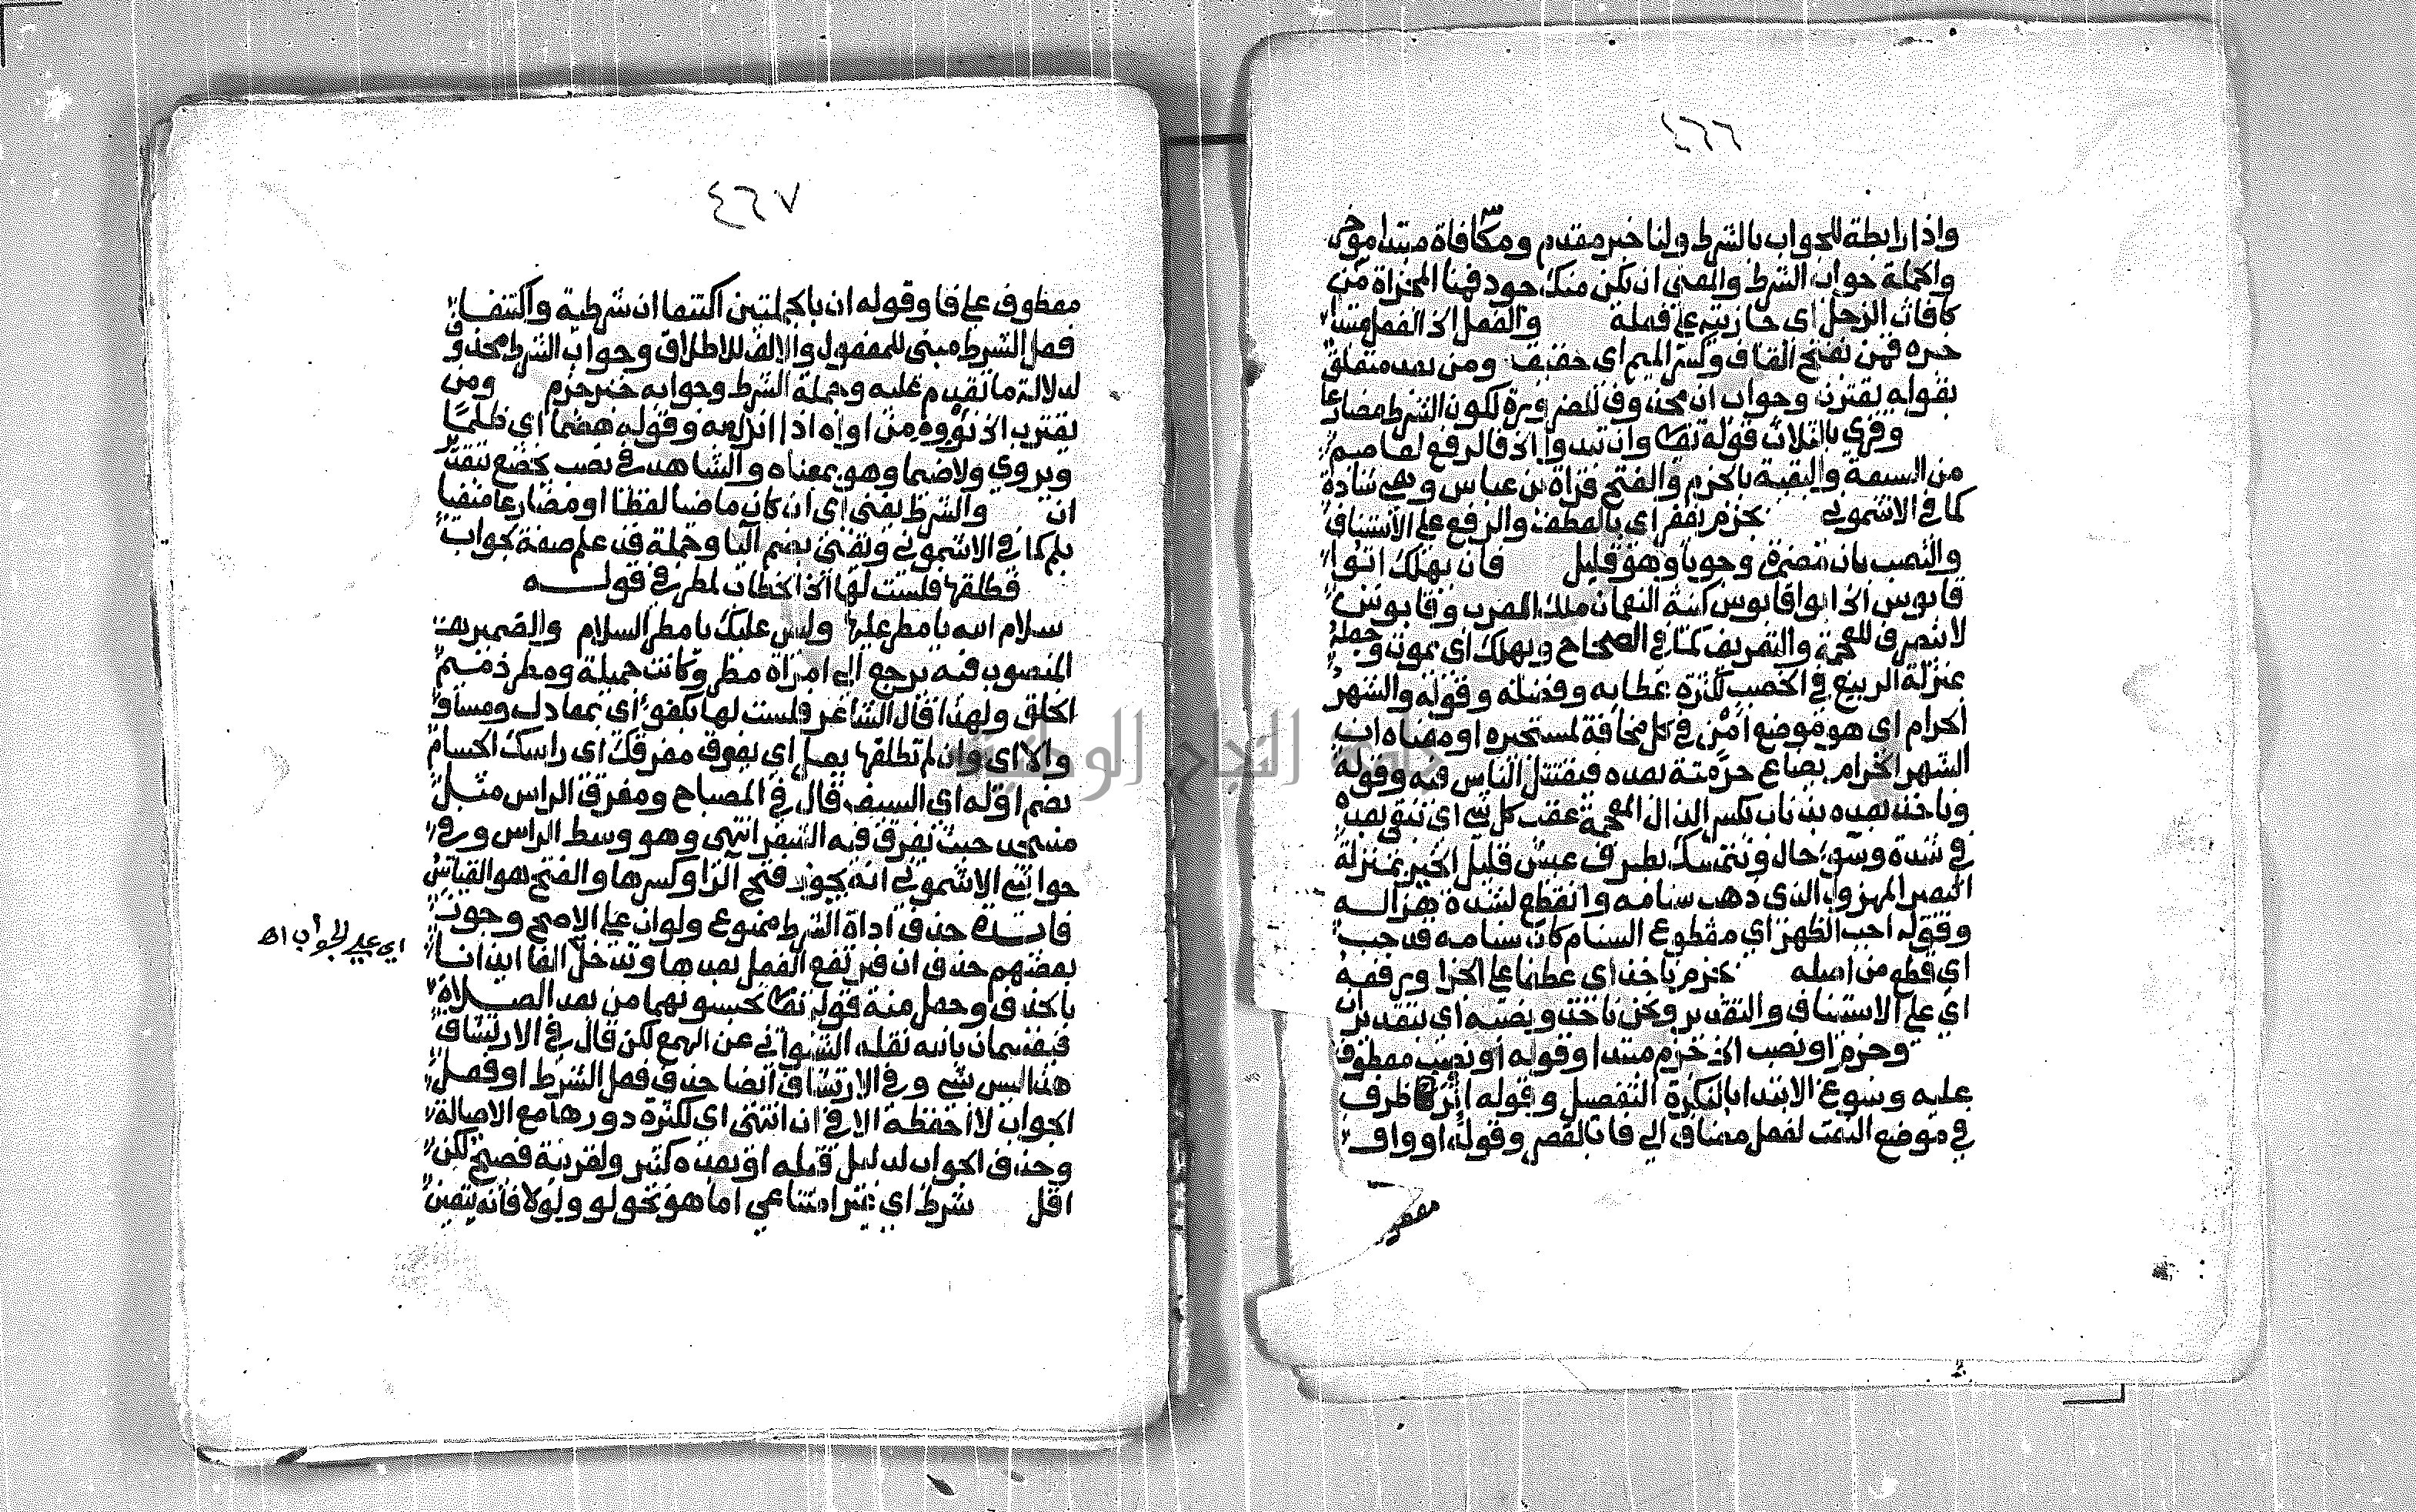 ٤٦٦
واذا رابطة للجواب بالشرط ولنا خبر مقدم ومكافاة مبتدا موخر
والجملة جواب الشرط والمعنى ان تكن منك جود فهنا المجزاة من
كافات الرجل اي جازيته على فعله والفعل اخ الفعل مبتدا
خبره قمن بفتح القاف وكسر الميم اي حقيق ومن بعد متعلق
بقوله يقترن وجواب ان محذوف للضرورة لكون الشرط مضارعا
وقري بالثلاث قوله تعا وان تبدوا اخ فالرفع لعاصم
من السبعة والبقية بالجزم والفتح قراة بن عباس وهي شاذة
كما في الاشموني بجزم يغفر اي بالعطف والرفع على الاستئناف
والنصب بان مضمرة وجوبا وهو قليل فان يهلك ابوا
قابوس اخ ابوا قابوس كنية النعمان ملك العرب وقابوس
لا ينصرف للعجمة والتعريف كما في الصحاح ويهلك اي يموت وجعله
بمنزلة الربيع في الخصب لكثرة عطايه وفضله وقوله والشهر
الحرام اي هو موضع امن في كل مخافة لمستجيره او معناه ان
الشهر الحرام يضاع حرمته بعده فيقتتل الناس فيه وقوله
وناخذ بعده بذناب بكسر الذال المعجمة عقب كل شي اي نبقى بعده
في شدة وسوء حال ونتمسك بطرف عيش قليل الخير بمنزلة
البعير المهزول الذي ذهب سنامه وانقطع لشدة هزاله
وقوله اجب الظهر اي مقطوع السنام كان سنامه قد جب
اي قطع من اصله بجزم ناخذ اي عطفا على الجزا ورفعه
اي على الاستئناف والتقدير ونحن ناخذ ونصبه اي بتقدير ان
وجزم او نصب اخ جزم مبتدا وقوله او نصب معطوف
عليه وسوغ الابتدا بالنكرة التفصيل وقوله اثر ظرف
في موضع النعت لفعل مضاف الي فا بالقصر وقوله او واف
٤٦٧
معطوف على فا وقوله ان بالجملتين اكتنفا ان شرطية واكتنفا
فعل الشرط مبني للمفعول والالف للاطلاق وجواب الشرط محذوف
لدلالة ما تقدم عليه وجملة الشرط وجوابه خبر جزم ومن
يقترب اخ نؤوه من اواه اذا انزله به وقوله هضما اي ظلما
ويروي ولا ضيما وهو بمعناه والشاهد في نصب يخضع بتقدير
ان والشرط يغني اي ان كان ماضيا لفظا او مضارعا منفيا
بلم كما في الاشموني وتغني بضم اليا وجملة قد علم صفة لجواب
فطلقها فلست لها اخ الخطاب لمطر في قوله
سلام الله يا مطر عليها وليس عليك يا مطر السلام والضمير
المنصوب فيه يرجع الى امراة مطر وكانت جميلة ومطر ذميم
الخلق ولهذا قال الشاعر فلست لها بكفوء اي بمعادل ومساو
والا اي وان لم تطلقها يعل اي يفوق مفرقك اي راسك الحسام
بضم اوله اي السيف قال في المصباح ومفرق الراس مثل
مسجد حيث تفرق فيه الشعر انتهى وهو وسط الراس وفي
حواشي الاشموني انه يجوز فتح الرا وكسرها والفتح هو القياس
فايدة حذف اداة الشرط ممنوع ولو ان على الاصح وجوز
بعضهم حذف ان فيرتفع الفعل بعدها وتدخل الفا ايذانا
بالحذف وجعل منه قوله تعا تحبسونهما من بعد الصلاة
فيقسمان بالله نقله الشنواني عن الهمع لكن قال في الارتشاف
هذا ليس بشي وفي الارتشاف ايضا حذف فعل الشرط او فعل
الجواب لا احفظه الا في ان انتهى اي لكثرة دورها مع الاصالة
وحذف الجواب لدليل قبله او بعده كثير ولقرينة فصيح لكن
اقل شرط اي غير امتناعي اما هو نحو لو ولولا فانه يتعين
اي على الجواب اه